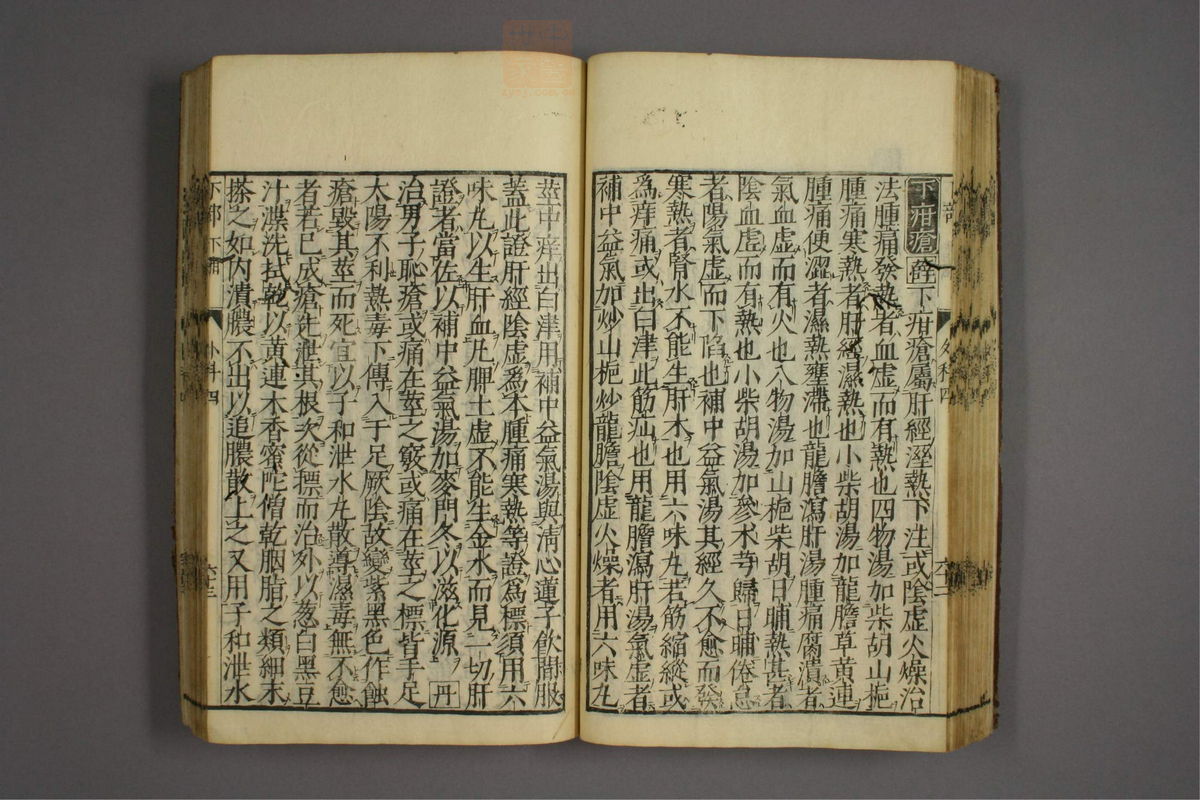 下疳瘡 薛 下疳瘡屬肝經溼熱下注或陰虛火燥治
法腫痛發熱者血虛而有熱也四物湯加柴胡山梔
腫痛寒熱者肝經濕熱也小柴胡湯加龍膽草黃連
腫痛便澀者濕熱壅滯也龍膽瀉肝湯腫痛腐潰者
氣血虛而有火也八物湯加山梔柴胡日晡熱甚者
陰血虛而有熱也小柴胡湯加參朮芎歸日晡倦怠
者陽氣虛而下陷也補中益氣湯其經久不愈而發
寒熱者腎水不能生肝木也用六味丸若筋縮縱或
爲痒痛或出白津此筋疝也用龍膽瀉肝湯氣虛者
補中益氣加炒山梔炒龍膽陰虛火燥者用六味丸
莖中痒出白津用補中益氣湯與清心蓮子飲間服
蓋此證肝經陰虛爲本腫痛寒熱等證爲標須用六
味丸以生肝血凡脾土虛不能生金水而見一切肝
證者當佐以補中益氣湯加麥門冬以滋化源 丹
治男子恥瘡或痛在莖之竅或痛在莖之標皆手足
太陽不利熱毒下傳入于足厥陰故變紫黑色作蝕
瘡毀其莖而死宜以子和泄水丸散導濕毒無不愈
者若已成瘡先泄其根次從標而治外以葱白黑豆
汁渫洗拭乾以黃連木香密陀僧乾胭脂之類細末
搽之如內潰膿不出以追膿散上之又用子和泄水
外科四
六十二
下部 下疳
外科四
六十三